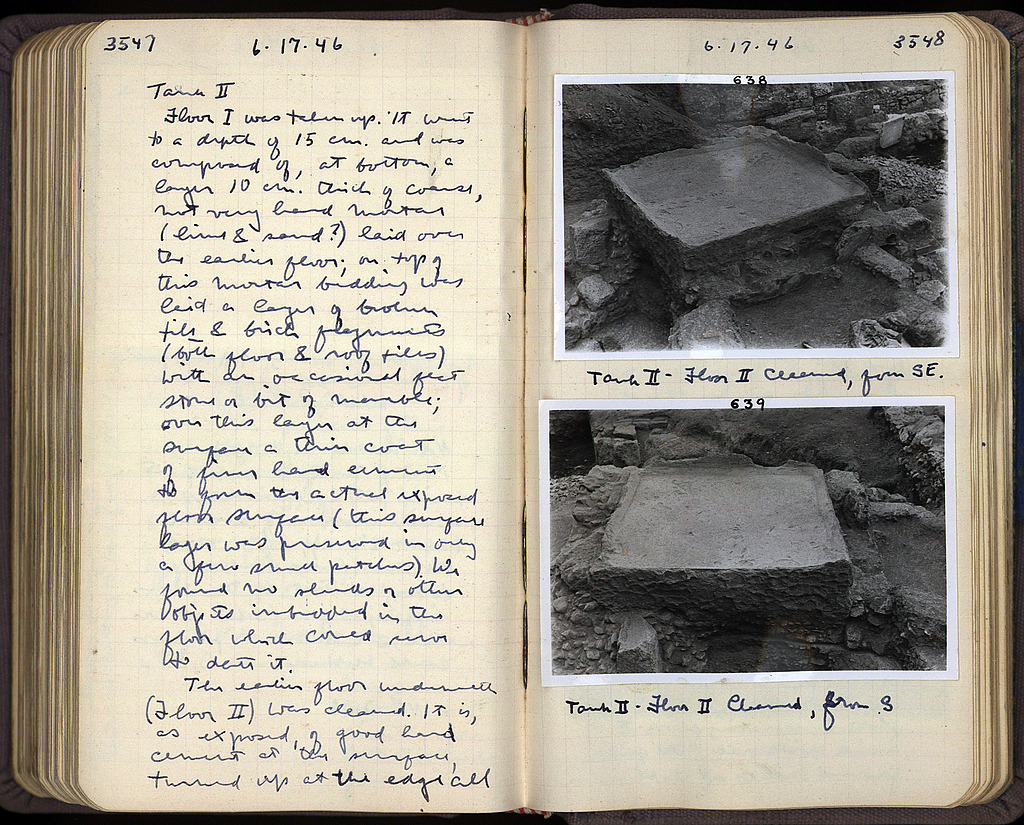 3547
6·17·46
Tank II
Floor I was taken up. It went
to a depth of 15 cm. and was
composed of, at bottom, a
layer 10 cm. thick of coarse,
not very hard mortar
(lime & sand?) laid over
the earlier floor; on top of
this mortar bedding was
laid a layer of broken
tile & brick fragments
(both floor & roof tiles)
with an occasional flat
stone or bit of marble;
over this layer at the
surface a thin coat
of firm hard cement
to form the actual exposed
floor surface (this surface
layer was preserved in only
a few small patches). We
found no sherds or other
objects imbedded in the
floor which could serve
to date it.
The earlier floor underneath
(Floor II) was cleaned. It is,
as exposed, of good hard
cement at the surface,
turned up at the edge all
6·17·46
3548
638
Tank II - Floor II Cleaned, from SE.
639
Tank II - Floor II Cleaned, from S